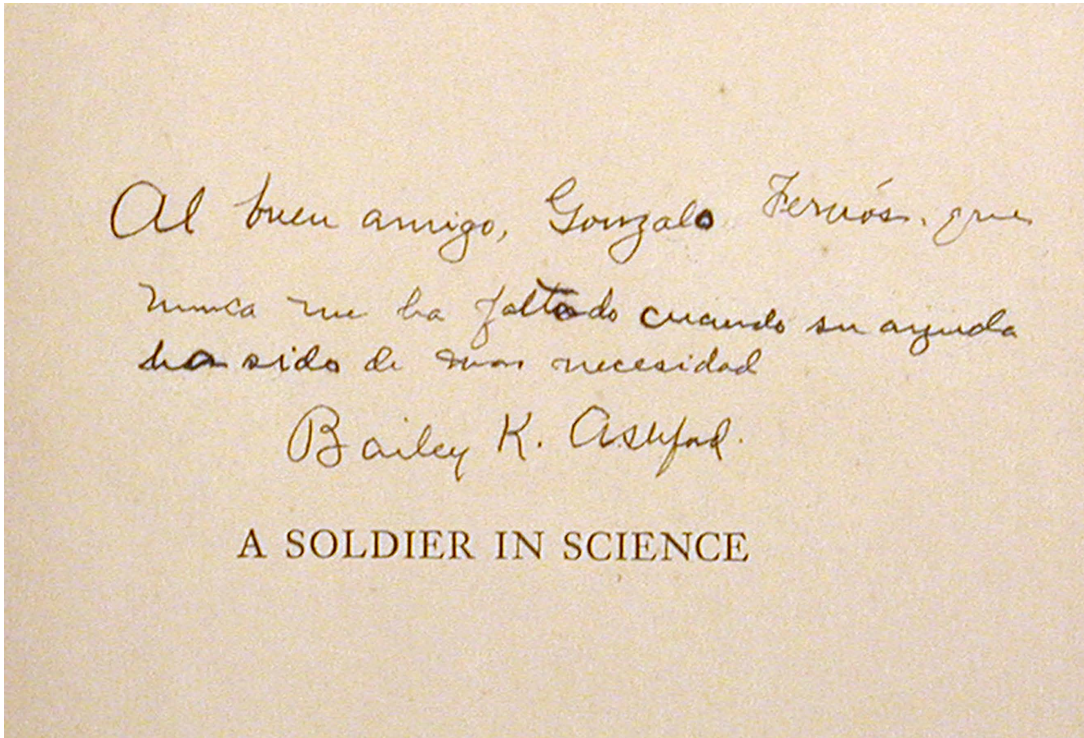 Al buen amigo, Gonzalo Fernós, que
nunca me ha faltado cuando su ayuda
ha sido de mas necesidad
Bailey K. Ashford.
A SOLDIER IN SCIENCE